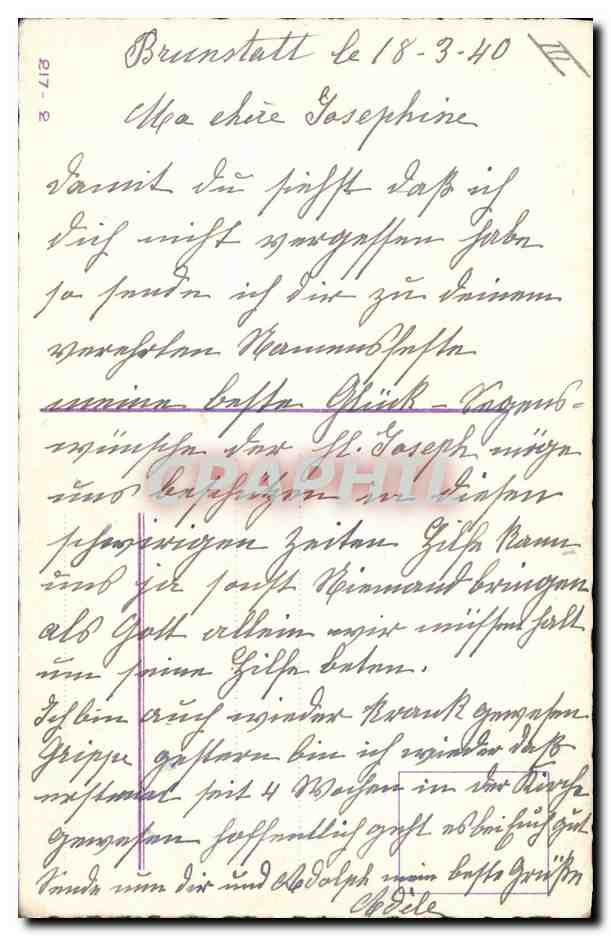 Brunstatt le 18-3-40
III
217-2
Ma chère Josephine
damit du siehst daß ich
dich nicht vergessen habe
so sende ich dir zu deinem
verehrten Namensfeste
meine beste Glück - Segens-
wünsche der hl. Joseph möge
uns beschützen in diesen
schwirigen Zeiten Hilfe kann
uns ja sonst Niemand bringen
als Gott allein wir müssen halt
um seine Hilfe beten.
Ich bin auch wieder krank gewesen
Grippe gestern bin ich wieder daß
erstemal seit 4 Wochen in der Kirche
gewesen hoffentlich geht es bei Euch gut
Sende nun dir und Adolph mein beste Grüße
Adèle
CPAPHIL